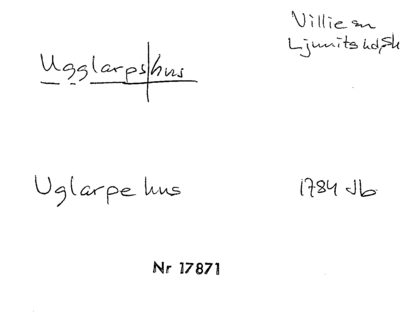 Villie sn
Ljunits hd, Sk
Ugglarps|hus
Uglarpe hus
1784 Jb
Nr 17871